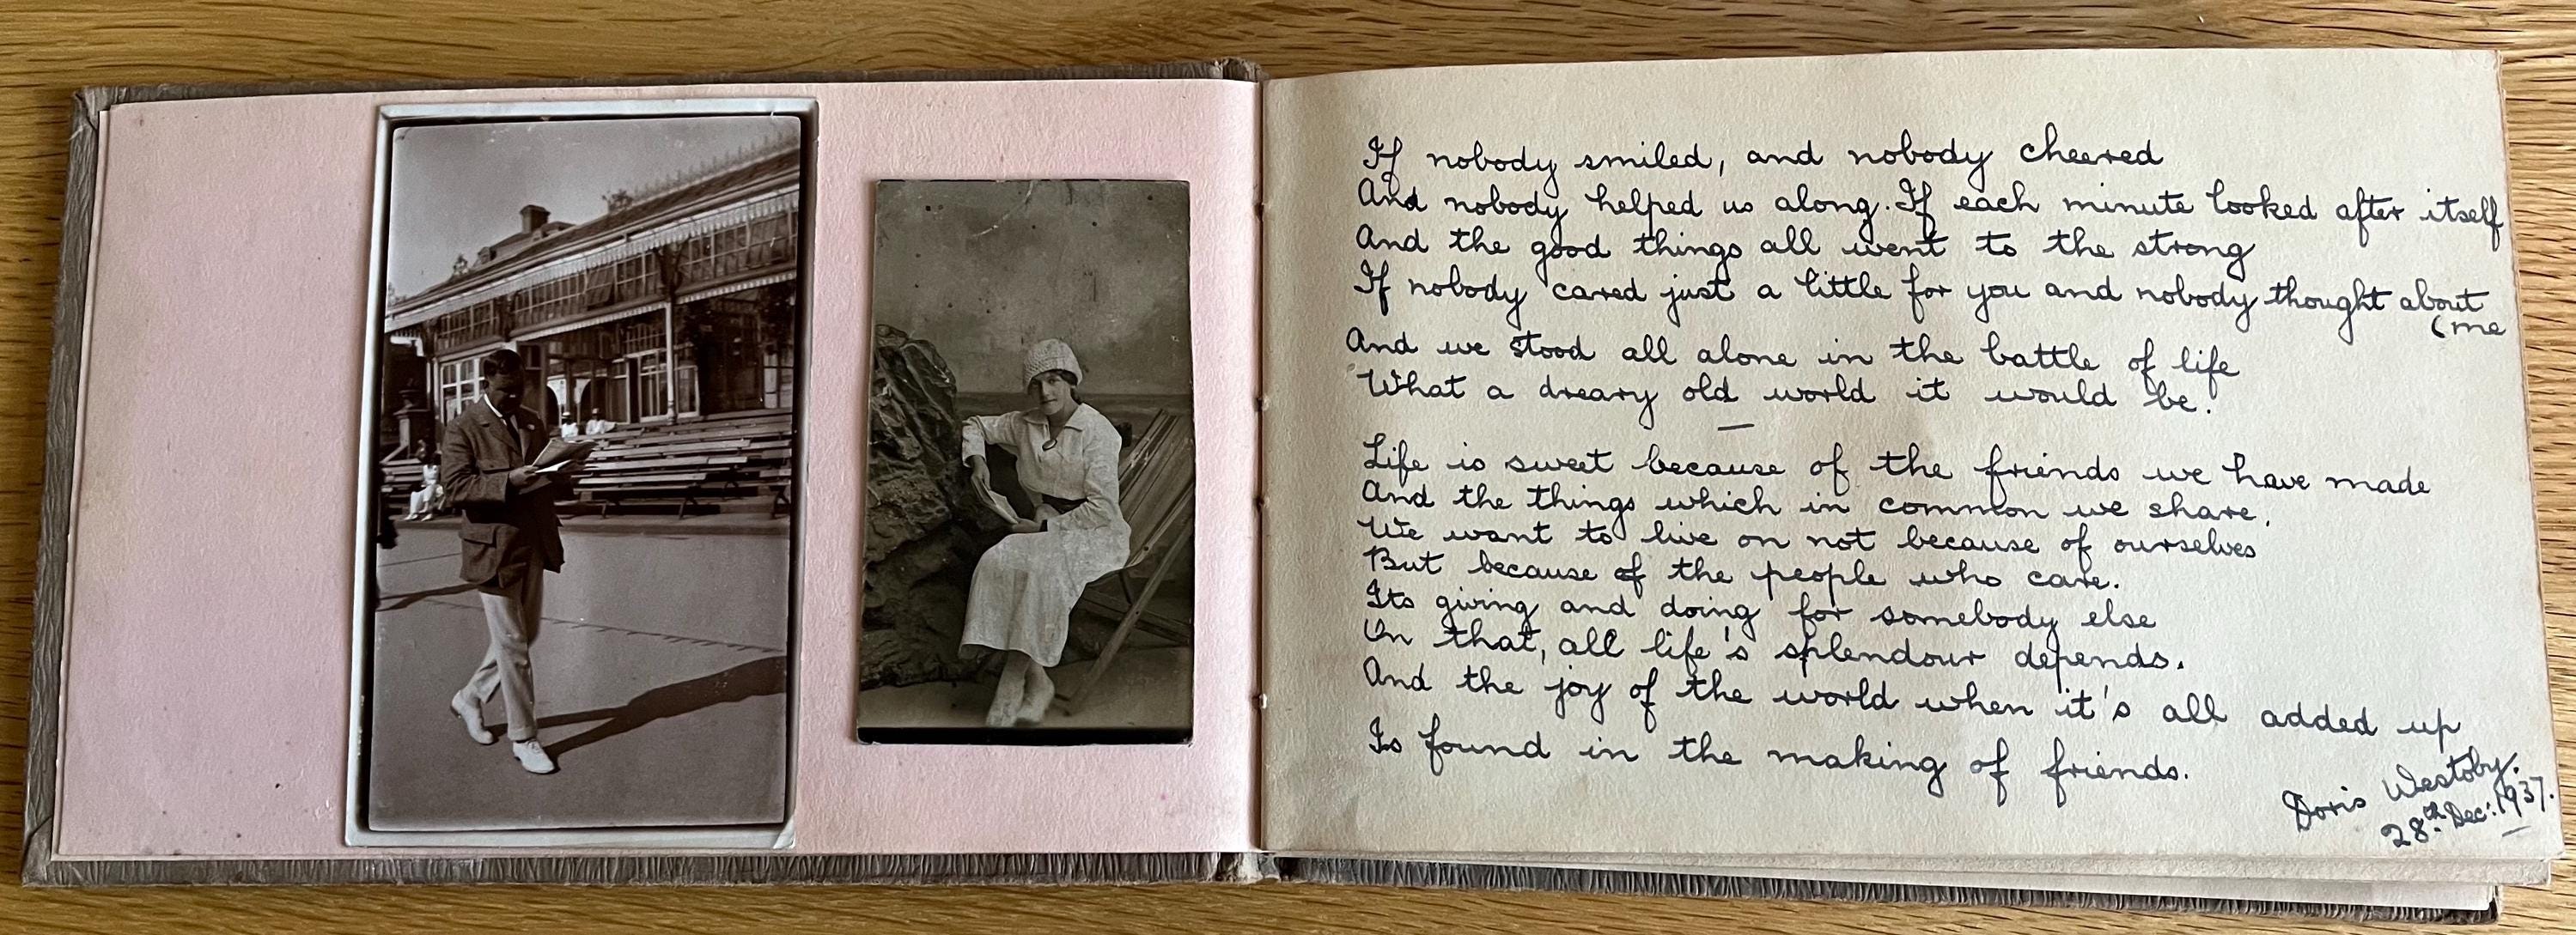 If nobody smiled, and nobody cheered
And nobody helped us along. If each minute looked after itself
And the good things all went to the strong
If nobody cared just a little for you and nobody thought about
(me
And we stood all alone in the battle of life
What a dreary old world it would be.
—
Life is sweet because of the friends we have made
And the things which in common we share,
We want to live on not because of ourselves
But because of the people who care.
Its giving and doing for somebody else
On that, all life's splendour depends.
And the joy of the world when it's all added up
Is found in the making of friends.
Doris Westoby.
28th Dec: 1937.